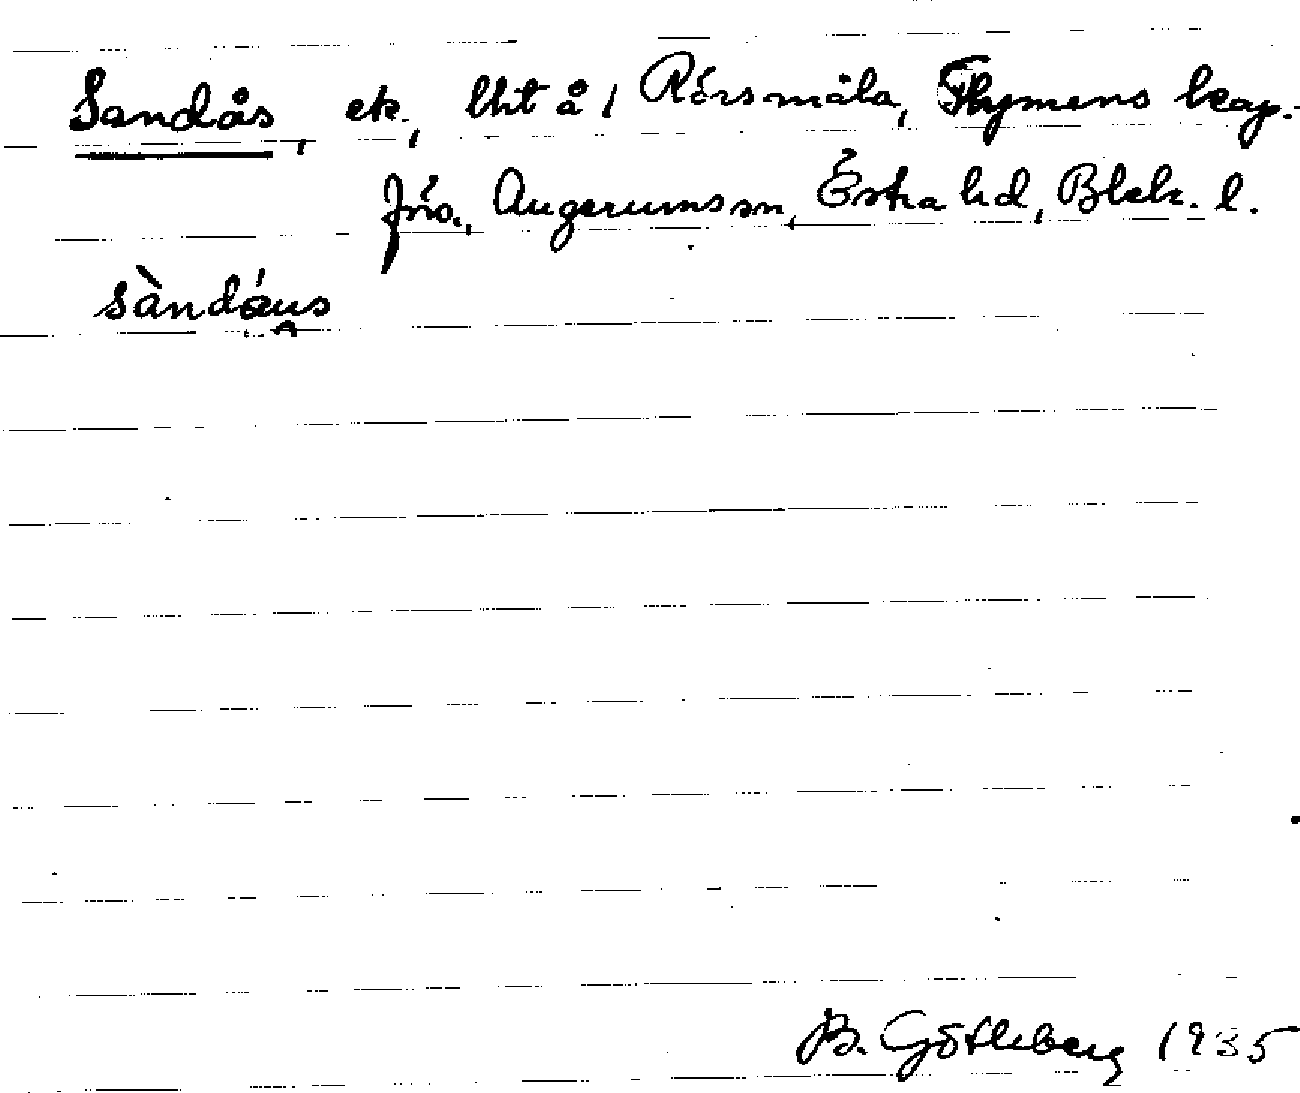 Sandås, ek., lht å 1 Rörsmåla, Flymens kap.-
frs., Augerums sn, Östra hd, Blek. l.
sàndáus
B. Göthberg 1935